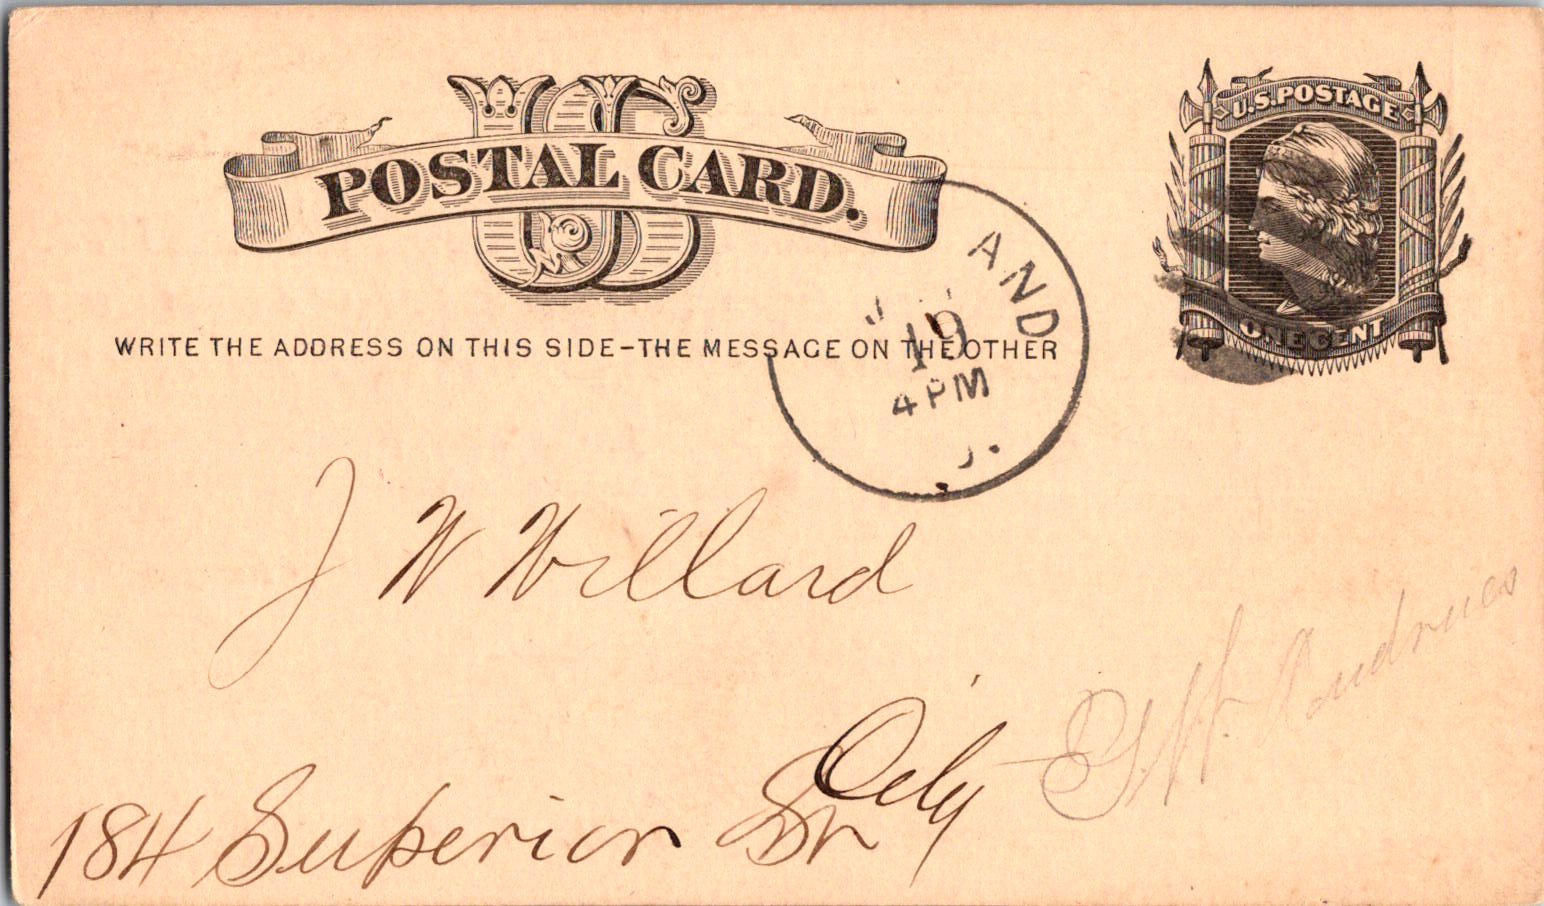 US
POSTAL CARD.
U.S. POSTAGE
ONE CENT
WRITE THE ADDRESS ON THIS SIDE-THE MESSAGE ON THE OTHER
AND
19
4 PM
J W Willard
City
184 Superior St